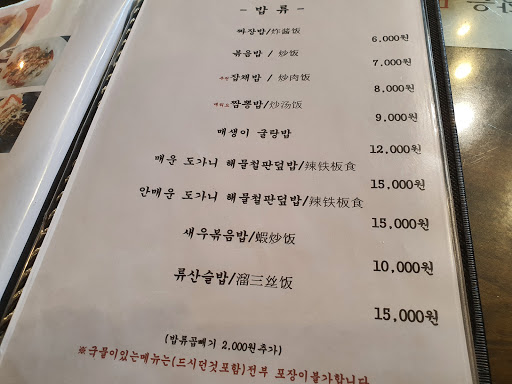 - 밥 류 -
짜장밥/炸酱饭 6,000원
볶음밥 / 炒饭 7,000원
잡채밥 / 炒肉饭 8,000원
짬뽕밥/炒汤饭 9,000원
매생이 굴탕밥 12,000원
매운 도가니 해물철판덮밥/辣铁板食 15,000원
안매운 도가니 해물철판덮밥/辣铁板食 15,000원
새우볶음밥/蝦炒饭 10,000원
류산슬밥/溜三丝饭 15,000원
(밥류곱빼기 2,000원추가)
※국물이있는메뉴는(드시던것포함)전부 포장이불가합니다